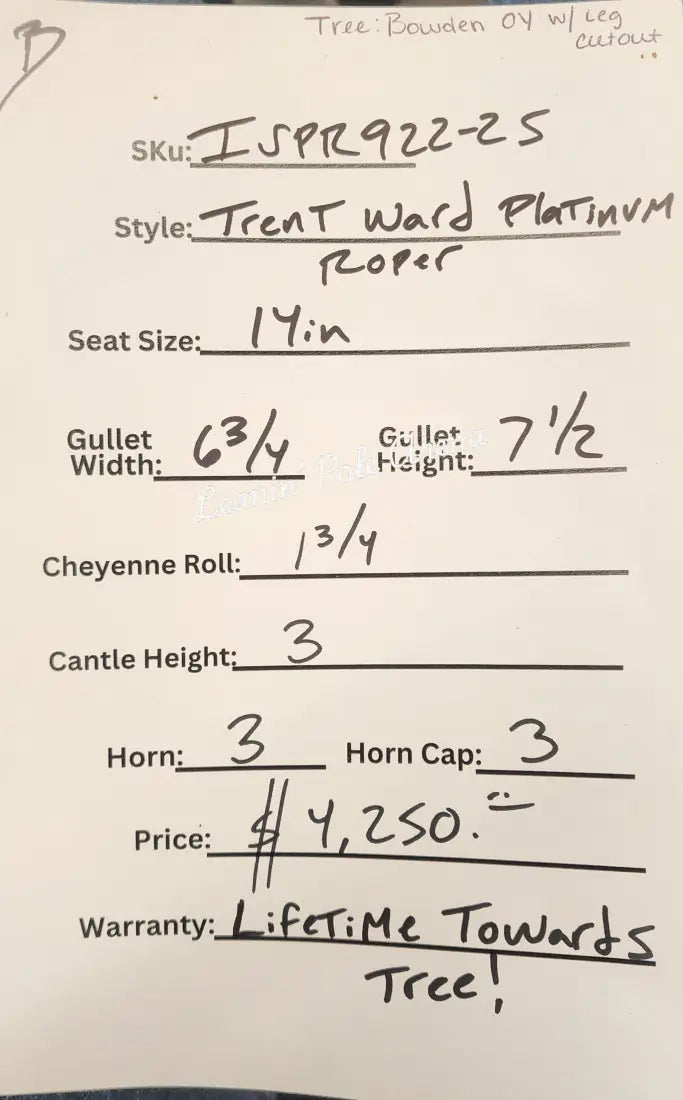 B
Tree: Bowden OY w/ Leg
cutout
SKu: ISPR922-25
Style: TrenT Ward PlaTinuM
Roper
Seat Size: 14in
Gullet Width: 6 3/4 Gullet Height: 7 1/2
Leanin' Pole Arena
Cheyenne Roll: 1 3/4
Cantle Height: 3
Horn: 3 Horn Cap: 3
Price: $ 4,250.=
Warranty: LifeTiMe Towards
Tree!